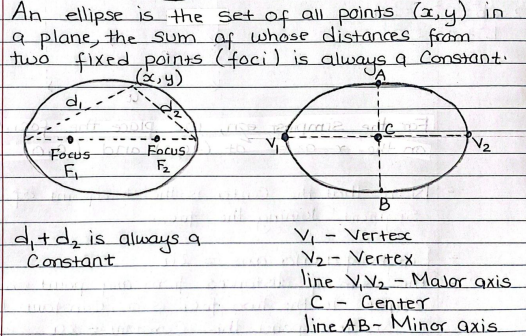 An ellipse is the set of all points (x,y) in
a plane, the sum of whose distances from
two fixed points (foci) is always a constant.
(x,y)
d₁
d₂
Focus
F₁
Focus
F₂
A
V₁
C
V₂
B
d₁+d₂ is always a
Constant
V₁ - Vertex
V₂ - Vertex
line V₁V₂ - Major axis
C - Center
line AB - Minor axis